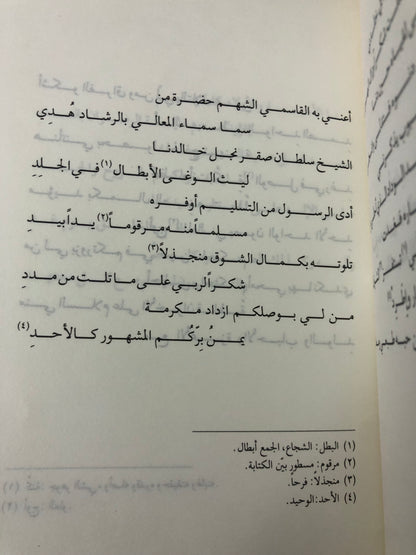 أعني به القاسمي الشهم حضرة من
سما سماء المعالي بالرشاد هُدِي
الشيخ سلطان صقر نجل خالدنا
ليث الوغى الأبطال(١) في الجلدِ
أدى الرسول من التسليم أوفره
مسلماً منه مرقوماً(٢) يداً بيدِ
تلوته بكمال الشوق منجذلاً(٣)
شكراً لربي على ما تلت من مددِ
من لي بوصلكم ازداد مكرمة
يمنُ بِرِّكُم المشهور كالأحدِ(٤)
(١) البطل: الشجاع، الجمع أبطال.
(٢) مرقوم: مسطور بيّن الكتابة.
(٣) منجذلاً: فرحاً.
(٤) الأحد: الوحيد.